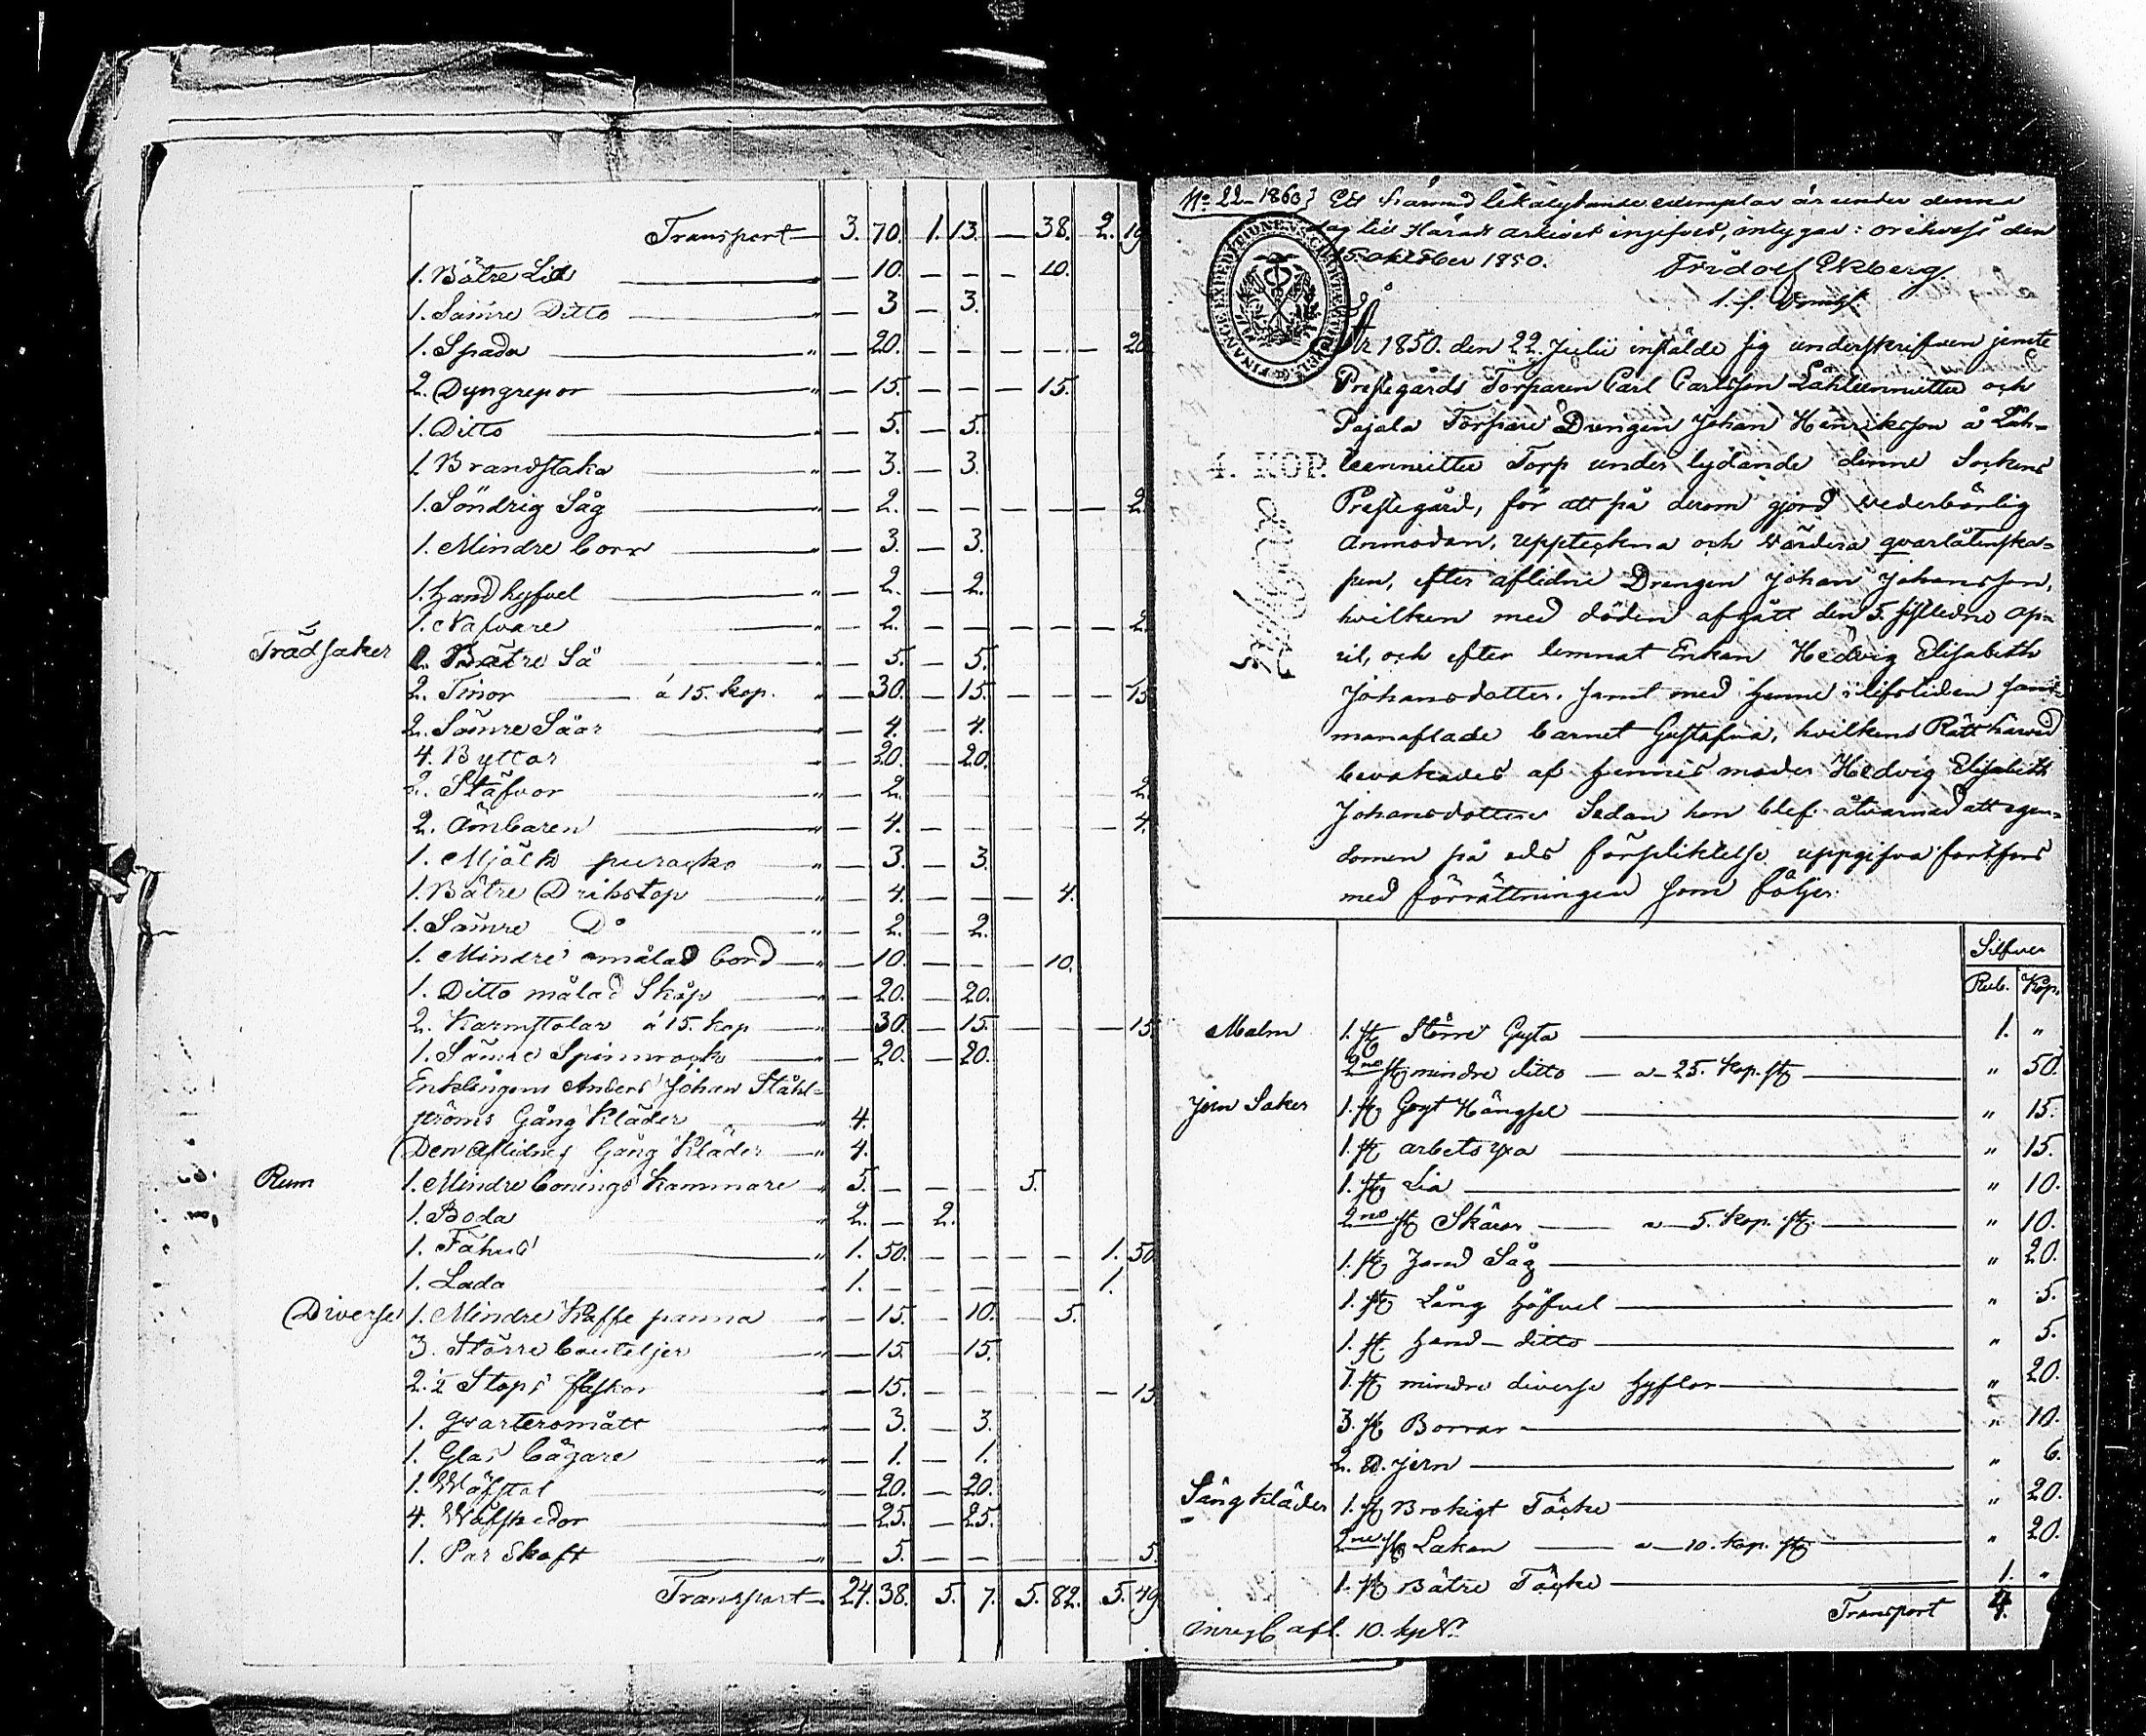 Transport 3. 70. 1. 13. — 38. 2. 19
1. Bätre Lia " — 10. — — — 10.
1. Sämre Ditto " — 3 — 3.
1. Spada " — 20. — — — — — 20
2. Dyngrepor " — 15. — — — 15.
1. Ditto " — 5. — 5.
1. Brandstaka " — 3. — 3.
1. Söndrig Såg " — 2. — — — — — 2.
1. Mindre borr " — 3. — 3.
1. Handhyfvel " — 2. — 2.
1. Nafvare " — 2. — — — — — 2.
Trädsaker 1. Bätre Så " — 5. — 5.
2. Tinor á 15. kop. " — 30. — 15. — — — 15
2. Sämre Såar " — 4. — 4.
4. Byttor " — 20. — 20.
2. Stäfvor " — 2. 2.
2. Ämbaren " — 4. — — — — — 4.
1. Mjölk puracka " — 3. — 3.
1. Bätre Drikstop " — 4. — — — 4.
1. Sämre Do " — 2. — 2.
1. Mindre omålad bord " — 10. — — — 10.
1. Ditto målad Skåp " — 20. — 20.
2. Karmstolar á 15. kop " — 30. — 15. — — — 15.
1. Sämre Spinnrock " — 20. — 20.
Enklingens Anders Johan Ståhl-
ströms Gång Kläder " 4.
Den Aflidnes Gång Kläder " 4.
Rum 1. Mindre bonings Kammare " 5. — — — 5.
1. Boda " 2. — 2.
1. Fähus " 1. 50. — — — — 1. 50
1. Lada " 1. — — — — — 1.
Diverse 1. Mindre Kaffe panna " — 15. — 10. — 5.
3. Större bouteljer " — 15. — 15.
2. 2 Stops flaskor " — 15. — — — — — 15
1. Qvartersmått " — 3. — 3.
1. Glas bägare " — 1. — 1.
1. Wäfstol " — 20. — 20.
4. Wäfskedor " — 25. — 25.
1. Par Skaft " — 5. — — — — 5.
Transport 24. 38. 5. 7. 5. 82. 5. 49
No 22 – 1860 Ett härmed likalydande exemplar är under denna
dag till Härads arkivet ingifvet, intygar: Orihvesi den
15 oktober 1850. Fridolf Ekberg.
FINANCE EXPEDITIONENS CHARTÆ
4. KOP.
År 1850. den 22. Julii instälde sig underskrifven jemte
Prestegårds Torparen Carl Carlsson Lähteenmitta och
Pajala Torpare Drengen Johan Henriksson å Läh-
teenmitta Torp under lydande denne Sockens
Prestegård, för att på derom gjord vederbörlig
anmodan, uppteckna och värdera qvarlåtenska-
pen, efter aflidne Drengen Johan Johansson,
hvilken med döden afgått den 5. sistledne Ap-
ril, och efter lemnat Enkan Hedvig Elisabeth
Johansdotter. samt med henne i lifstiden sam-
manaflade barnet Gustafva, hvilkens Rätt härvid
bevakades af hennes moder Hedvig Elisabeth
Johansdotter. Sedan hon blef åtvarnad att egen-
domen på eds förpliktelse uppgifva fortfors
med förrättningen som följer:
Silfver
Rub. Kop.
Malm 1. st Större Gryta 1. "
2ne st mindre ditto a 25. kop. st " 50
Jern Saker 1. st Gryt Hängsel " 15.
1. st arbets yxa " 15.
1. st Lia " 10.
2ne st Skäror a 5. kop. st " 10.
1. st Hand Såg " 20.
1. st Lång höfvel " 5.
1. st hand ditto " 5.
7. st mindre diverse hyflor " 20.
3. st Borrar " 10.
2. jern " 6.
Sängkläder 1. st Brokigt Täcke " 20.
2ne st Lakan a 10. kop. st " 20.
1. st Bätre Täcke 1. "
Transport 4.